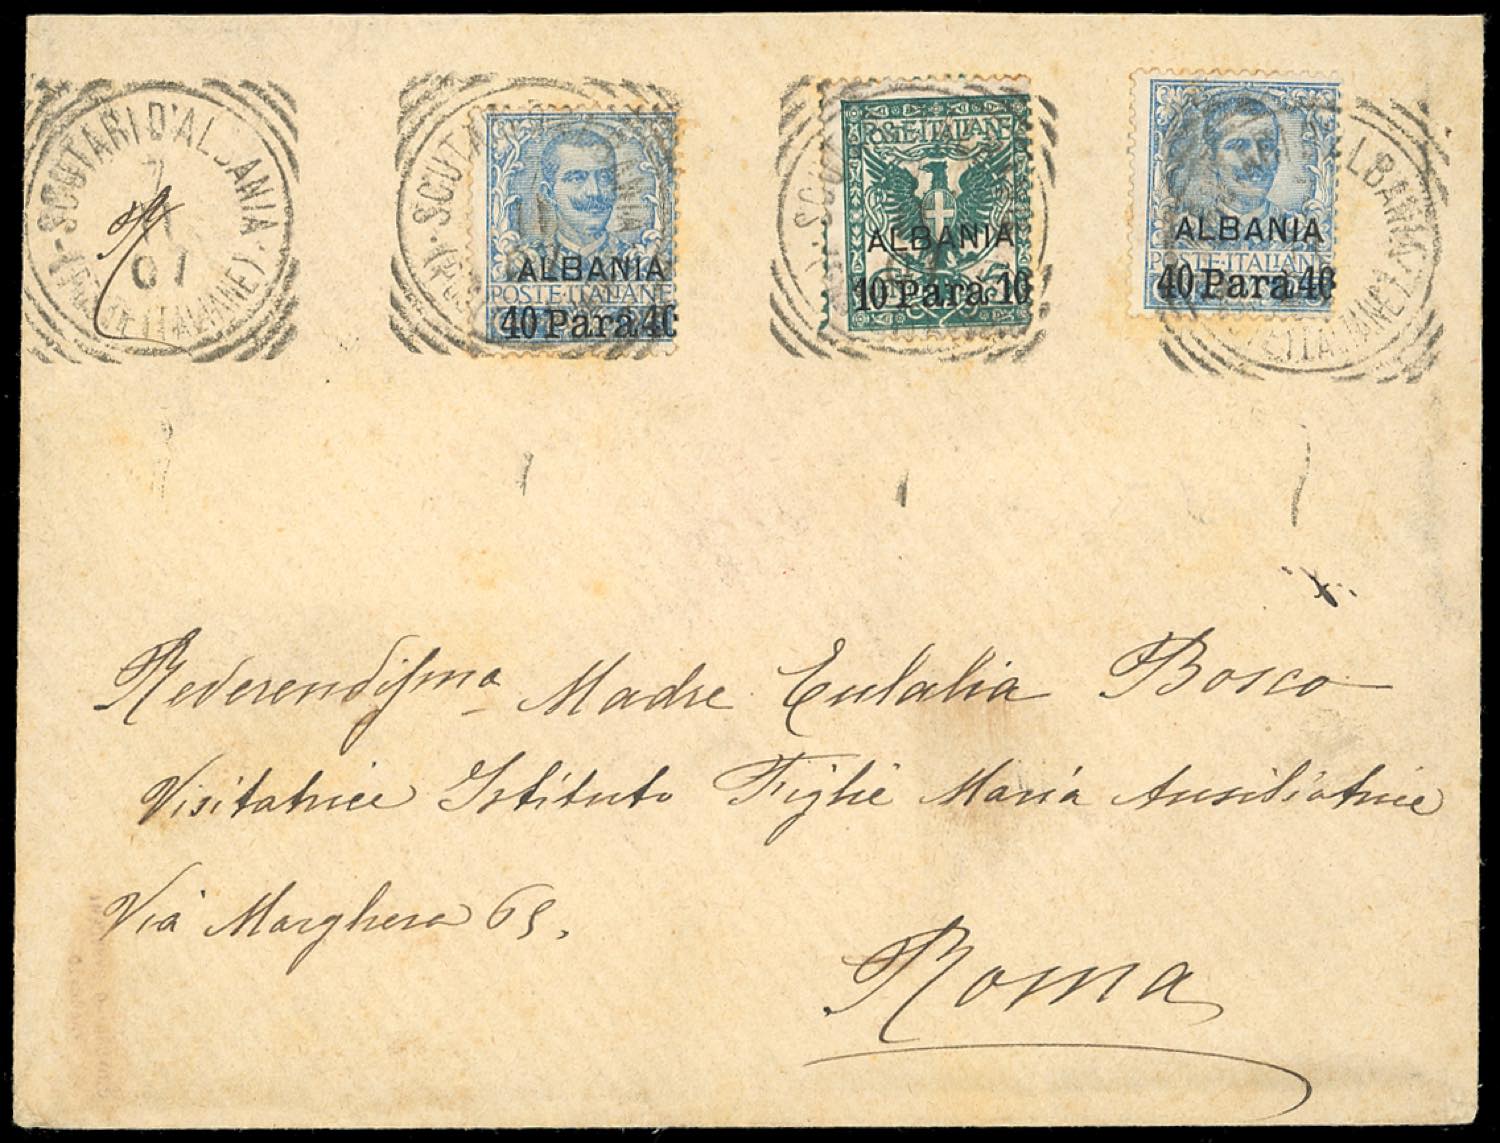 SCUTARI D'ALBANIA
7
11
07
(POSTE ITALIANE)
ALBANIA
POSTE·ITALIANE
40 Para 40
POSTE·ITALIANE
ALBANIA
10 Para 10
ALBANIA
POSTE·ITALIANE
40 Para 40
ALBANIA
Reverendissma Madre Eulalia Bosco
Visitatrice Istituto Figlie Maria Ausiliatrice
Via Marghera 65.
Roma